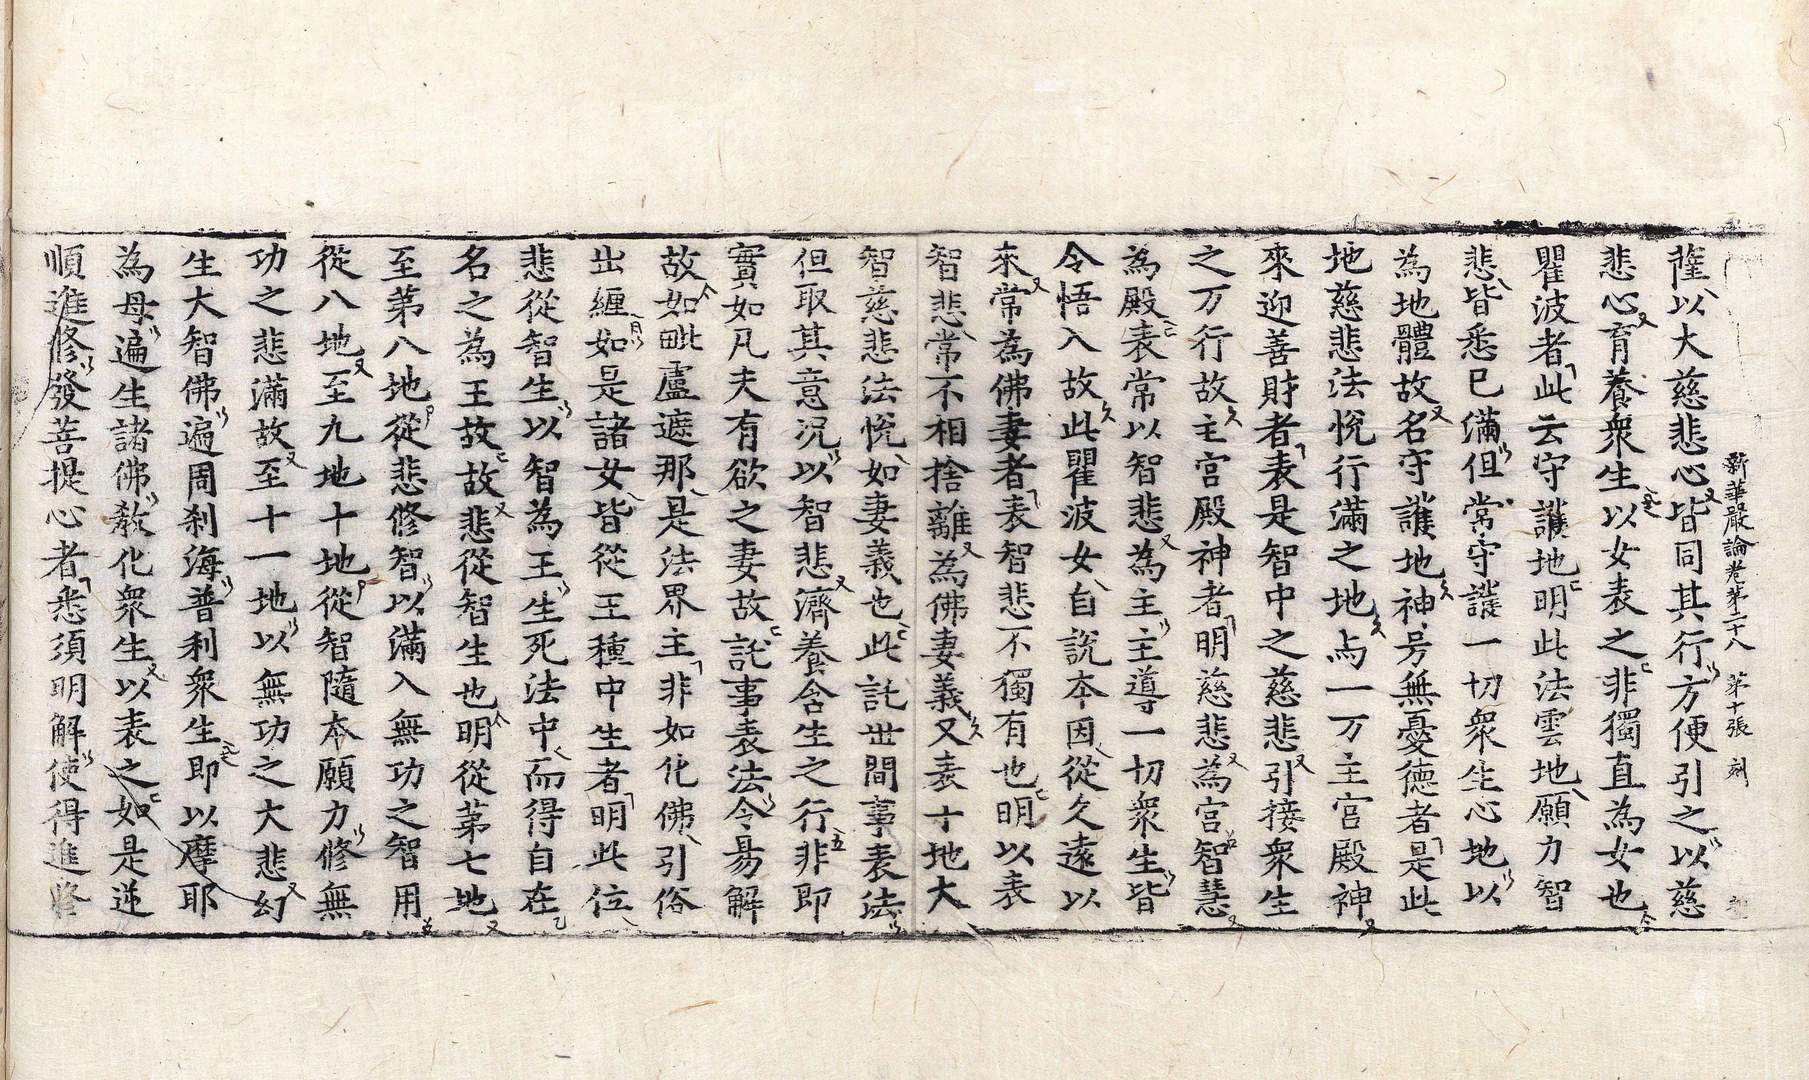 新華嚴論卷第三十八 第十張
薩以大慈悲心皆同其行方便引之以慈
悲心育養衆生以女表之非獨直為女也
瞿波者此云守護地明此法雲地願力智
悲皆悉已滿但常守護一切衆生心地以
為地體故名守護地神号無憂德者是此
地慈悲法悅行滿之地与一万主宮殿神
來迎善財者表是智中之慈悲引接衆生
之万行故主宮殿神者明慈悲為宮智慧
為殿表常以智悲為主主導一切衆生皆
令悟入故此瞿波女自說本因從久遠以
來常為佛妻者表智悲不獨有也明以表
智悲常不相捨離為佛妻義又表十地大
智慈悲法悅如妻義也此託世間事表法
但取其意况以智悲濟養含生之行非即
實如凡夫有欲之妻故託事表法令易解
故如毗盧遮那是法界主非如化佛引俗
出纏如是諸女皆從王種中生者明此位
悲從智生以智為王生死法中而得自在
名之為王故故悲從智生也明從苐七地
至苐八地從悲修智以滿入無功之智用
從八地至九地十地從智隨本願力修無
功之悲滿故至十一地以無功之大悲幻
生大智佛遍周刹海普利衆生即以摩耶
為母遍生諸佛教化衆生以表之如是逆
順進修發菩提心者悉須明解使得進修